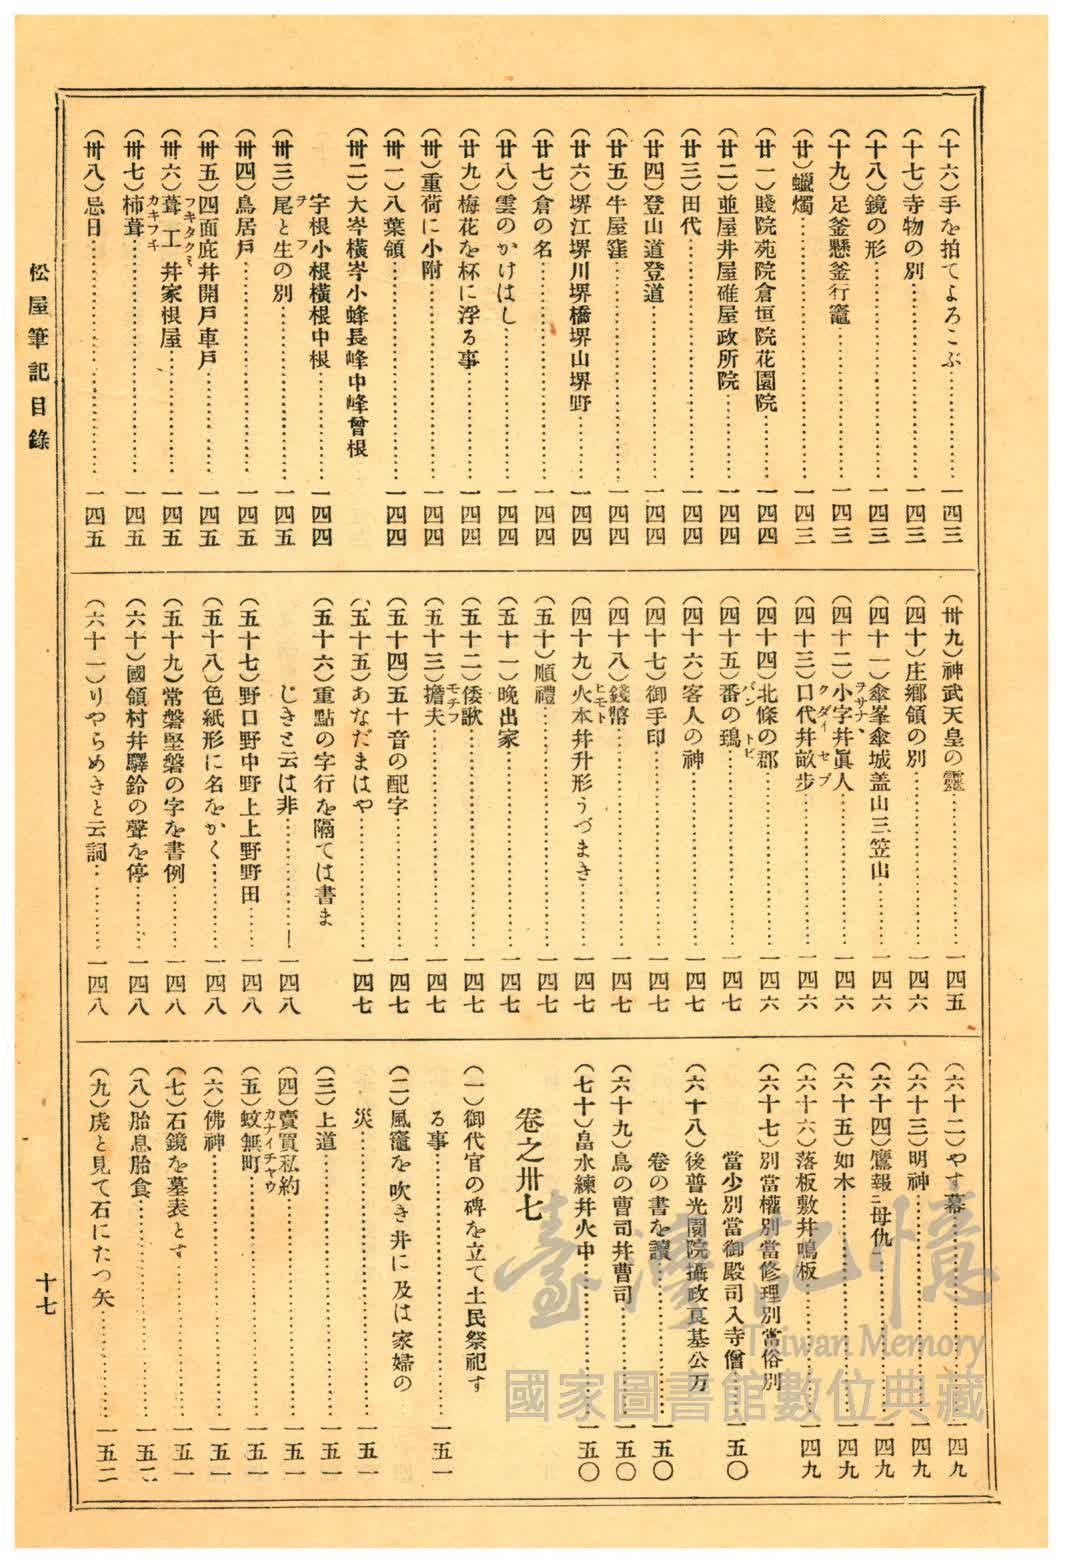 (十六)手を拍てよろこぶ……一四三
(十七)寺物の別……一四三
(十八)鏡の形……一四三
(十九)足釜懸釜行竈……一四三
(廿)蠟燭……一四三
(廿一)賤院苑院倉垣院花園院……一四四
(廿二)並屋井屋碓屋政所院……一四四
(廿三)田代……一四四
(廿四)登山道登道……一四四
(廿五)牛屋窪……一四四
(廿六)堺江堺川堺橋堺山堺野……一四四
(廿七)倉の名……一四四
(廿八)雲のかけはし……一四四
(廿九)梅花を杯に浮る事……一四四
(卅)重荷に小附……一四四
(卅一)八葉領……一四四
(卅二)大岑横岑小蜂長峰中峰曾根
字根小根横根中根……一四四
(卅三)尾と生の別……一四五
ヲ フ
(卅四)鳥居戸……一四五
(卅五)四面庇井開戸車戸……一四五
(卅六)葺工井家根屋……一四五
フキタクミ
(卅七)柿葺……一四五
カキフキ
(卅八)忌日……一四五
(卅九)神武天皇の靈……一四五
(四十)庄郷領の別……一四六
(四十一)傘峯傘城盖山三笠山……一四六
(四十二)小字井眞人……一四六
ヲサナ
(四十三)口代井畝步……一四六
クダイ セブ
(四十四)北條の郡……一四六
(四十五)番の鵄……一四七
バン トビ
(四十六)客人の神……一四七
(四十七)御手印……一四七
(四十八)錢幣……一四七
(四十九)火本井升形うづまき……一四七
ヒモト
(五十)順禮……一四七
(五十一)晩出家……一四七
(五十二)倭歌……一四七
(五十三)擔夫……一四七
モチフ
(五十四)五十音の配字……一四七
(五十五)あなだまはや……一四七
(五十六)重點の字行を隔ては書ま
じきと云は非……一四八
(五十七)野口野中野上上野野田……一四八
(五十八)色紙形に名をかく……一四八
(五十九)常磐堅磐の字を書例……一四八
(六十)國領村井驛鈴の聲を停……一四八
(六十一)りやらめきと云詞……一四八
(六十二)やす幕……一四九
(六十三)明神……一四九
(六十四)鷹報ニ母仇……一四九
(六十五)如木……一四九
(六十六)落板敷井鳴板……一四九
(六十七)別當權別當修理別當俗別
當少別當御殿司入寺僧……一五〇
(六十八)後普光園院攝政良基公万
卷の書を讀……一五〇
(六十九)鳥の曹司井曹司……一五〇
(七十)畠水練井火中……一五〇
卷之卅七
(一)御代官の碑を立て土民祭祀す
る事……一五一
(二)風竈を吹き井に及は家婦の
災……一五一
(三)上道……一五一
(四)賣買私約……一五一
(五)蚊無町……一五一
カナイチャウ
(六)佛神……一五一
(七)石鏡を墓表とす……一五一
(八)胎息胎食……一五二
(九)虎と見て石にたつ矢……一五二
松屋筆記目錄
十七
臺灣記憶
Taiwan Memory
國家圖書館數位典藏